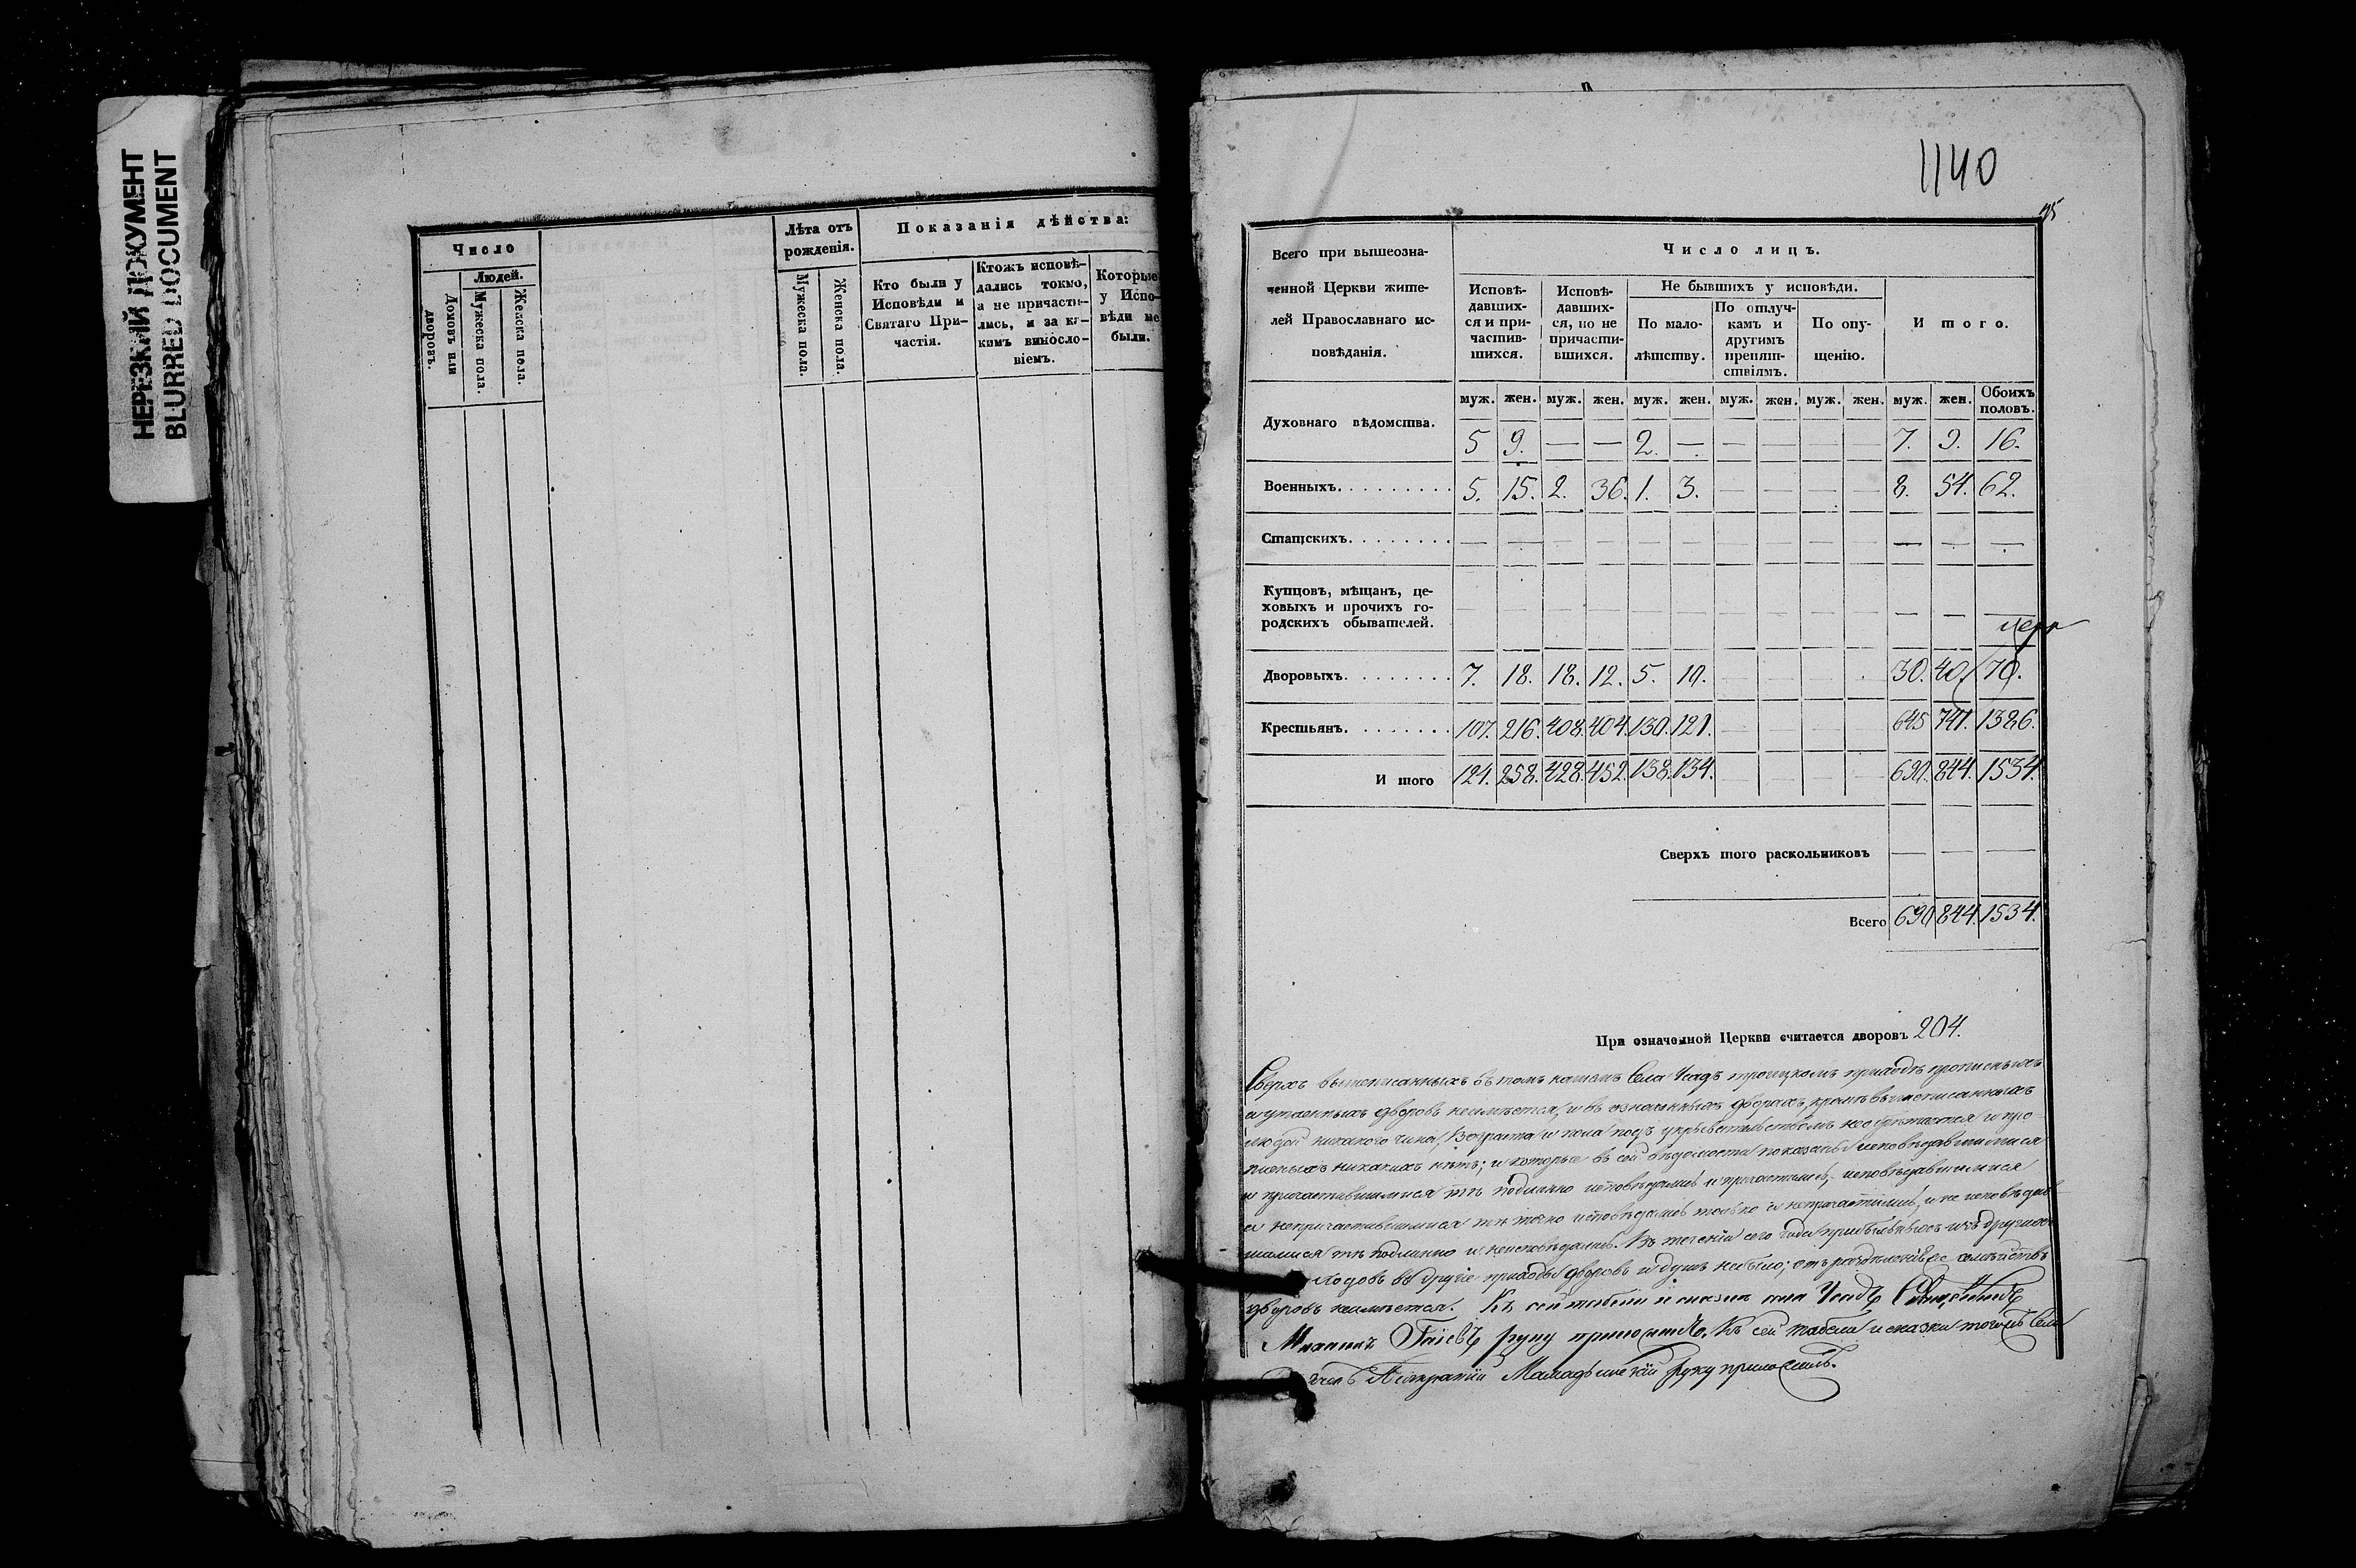 НЕРЕЗКИЙ ДОКУМЕНТ
BLURRED DOCUMENT
Число
Людей.
Домовъ или дворовъ.
Мужеска пола.
Женска пола.
Лѣта отъ рожденія.
Мужеска пола.
Женска пола.
Показанія дѣйства:
Кто были у
Исповѣди и
Святаго При-
частія.
Ктожъ исповѣ-
дались токмо,
а не причасти-
лись, и за ка-
кимъ винословіемъ.
Которые
у Испо-
вѣди не
были.
1140
Всего при вышеозна-
ченной Церкви жите-
лей Православнаго ис-
повѣданія.
Число лицъ.
Исповѣ-
давших-
ся и при-
частив-
шихся.
Исповѣ-
давших-
ся, но не
причасти-
вшихся.
Не бывшихъ у исповѣди.
По мало-
лѣтству.
По отлуч-
камъ и
другимъ
препят-
ствіямъ.
По опу-
щенію.
Итого.
муж. жен. муж. жен. муж. жен. муж. жен. муж. жен. муж. жен. Обоихъ половъ.
Духовнаго вѣдомства. 5 9. — — 2. — — — — — 7. 9. 16.
Военныхъ. 5. 15. 2. 36. 1. 3. — — — — 8. 54. 62.
Статскихъ. — — — — — — — — — — — — —
Купцовъ, мѣщанъ, це-
ховыхъ и прочихъ го-
родскихъ обывателей. — — — — — — — — — — — — —
Дворовыхъ. 7. 18. 18. 12. 5. 10. — — — — 30. 40. 70.
Крестьянъ. 107. 216. 408. 404. 130. 121. — — — — 645 741. 1386.
Итого 124. 258. 428. 452. 138. 134. — — — — 690. 844. 1534.
Сверхъ того раскольниковъ — — —
Всего 690 844. 1534.
При означенной Церкви считается дворовъ 204.
Сверхъ вышеписанныхъ въ томъ нашемъ Села Усадъ приходѣ прописныхъ
и утаенныхъ дворовъ неимѣется, и въ означенныхъ дворахъ, кромѣ вышеписанныхъ
людей никакого чина, возраста и пола подъ укрывательствомъ не обрѣтается и про-
писныхъ никакихъ нѣтъ; и которые въ сей вѣдомости показаны исповѣдавшимися
и причастившимися тѣ подлинно исповѣдались и причастились, исповѣдавшимися
и непричастившимися тѣ точно исповѣдались только а непричастились, и не исповѣдав-
шимися тѣ подлинно и неисповѣдались. Въ теченіи сего года прибывшихъ изъ другихъ
въ другіе приходы дворовъ и душъ небыло; отъ раздѣленія семействъ
дворовъ неимѣется. Къ сей табели и сказкѣ села Усадъ Священникъ
Михаилъ руку приложилъ. Къ сей табели и сказкѣ тогожъ Села
руку приложилъ.